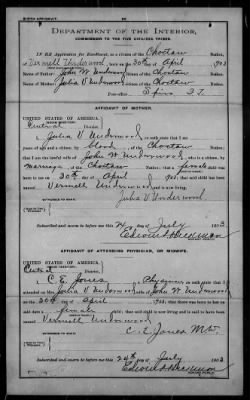 BIRTH AFFIDAVIT.
DEPARTMENT OF THE INTERIOR,
COMMISSION TO THE FIVE CIVILIZED TRIBES.
IN RE Application for Enrollment, as a citizen of the Choctaw Nation,
of Vermell Underwood, born on the 30th day of April, 1903
Name of Father: John W Underwood, a citizen of the Choctaw Nation.
Name of Mother: Julia V Underwood, a citizen of the Choctaw Nation.
Post-office Spiro I.T.
AFFIDAVIT OF MOTHER.
UNITED STATES OF AMERICA,
Central District.
I, Julia V Underwood, on oath state that I am
years of age and a citizen by blood, of the Choctaw Nation;
that I am the lawful wife of John W Underwood, who is a citizen, by
Marriage of the Choctaw Nation; that a female child was born
to me on 30th day of April, 1903; that said child has been named
Vermell Underwood, and is now living.
Julia V Underwood
Subscribed and sworn to before me this day of July 1903
AFFIDAVIT OF ATTENDING PHYSICIAN, OR MIDWIFE.
UNITED STATES OF AMERICA,
District.
I, C. E. Jones, a Physician, on oath state that I
attended on Mrs. Julia V Underwood, wife of John W Underwood
on the 30th day of April, 1903; that there was born to her on
said date a female child; that said child is now living and is said to have been
named Vermell Underwood
C. E. Jones MD.
Subscribed and sworn to before me this 24th day of July 1903